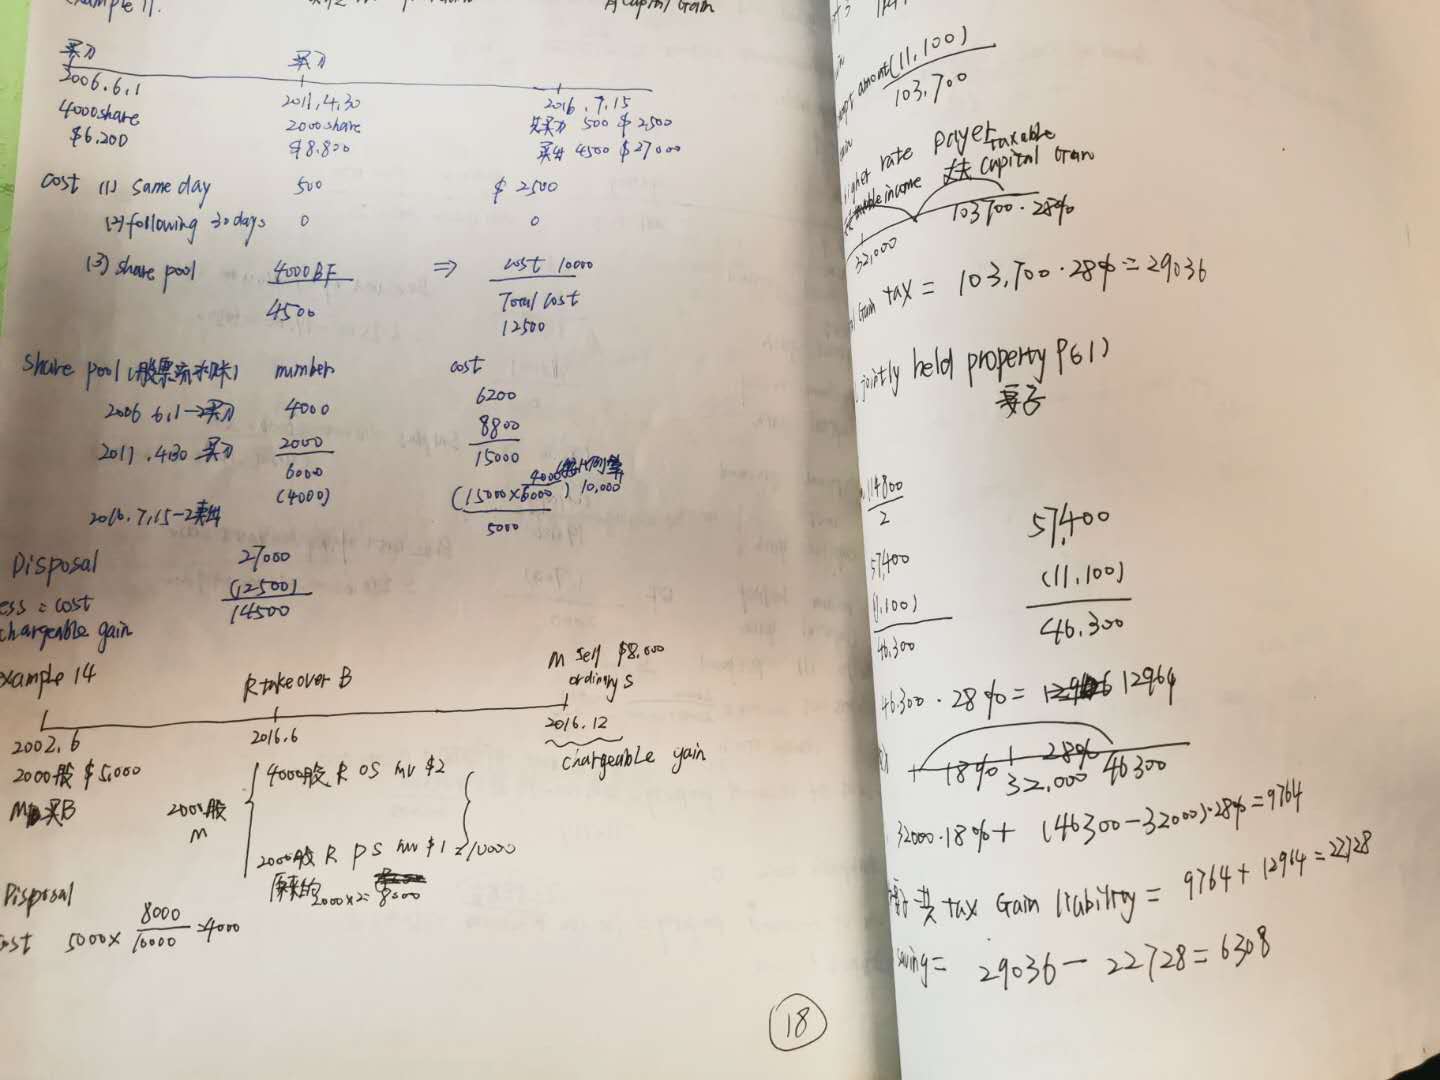 Example 11.
A Capital Gain
买入 买入
2006.6.1 2011.4.30 2016.7.15
4000share 2000share 共买入 500 $2500
$6.200 $8.800 卖出 4500 $27000
cost (1) same day 500 $2500
(2) following 30days 0 0
(3) share pool 4000BF ⇒ cost 10000
4500 Total cost
12500
Share pool (股票流水账) number cost
2006 6.1-买入 4000 6200
8800
2011.430 买入 2000 15000
6000 4000 按比例算
(4000) (15000×6000) 10,000
2016.7.15-卖出 5000
Disposal 27000
ess: cost (12500)
chargeable gain 14500
example 14 R takeover B M sell $8.000
ordinary s
2002.6 2016.6 2016.12
2000股 $5,000 chargeable gain
M买B 4000股 R OS mv $2
2000股
M
2000股 R PS mv $1 = 10000
原来的 2000×2= 8000
Disposal
ost 5000× 8000/10000 =4000
18
amount (11,100)
103,700
higher rate payer taxable
income 丈夫 Capital Gain
32,000 103700·28%
Gain tax = 103,700·28%=29036
jointly held property P61)
妻子
114800
2 57,400
57,400 (11,100)
46,300
46,300
46.300·28%= 12964
18% 28%
32,000 46300
32000·18%+ (46300-32000)·28%=9764
共 tax Gain liability = 9764+12964=22728
saving= 29036-22728=6308